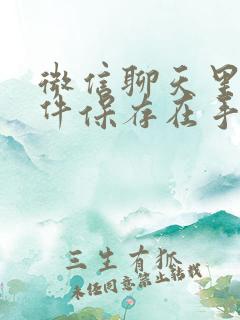 微信聊天里
件保存在手
三生有狐
未经同意禁止转载